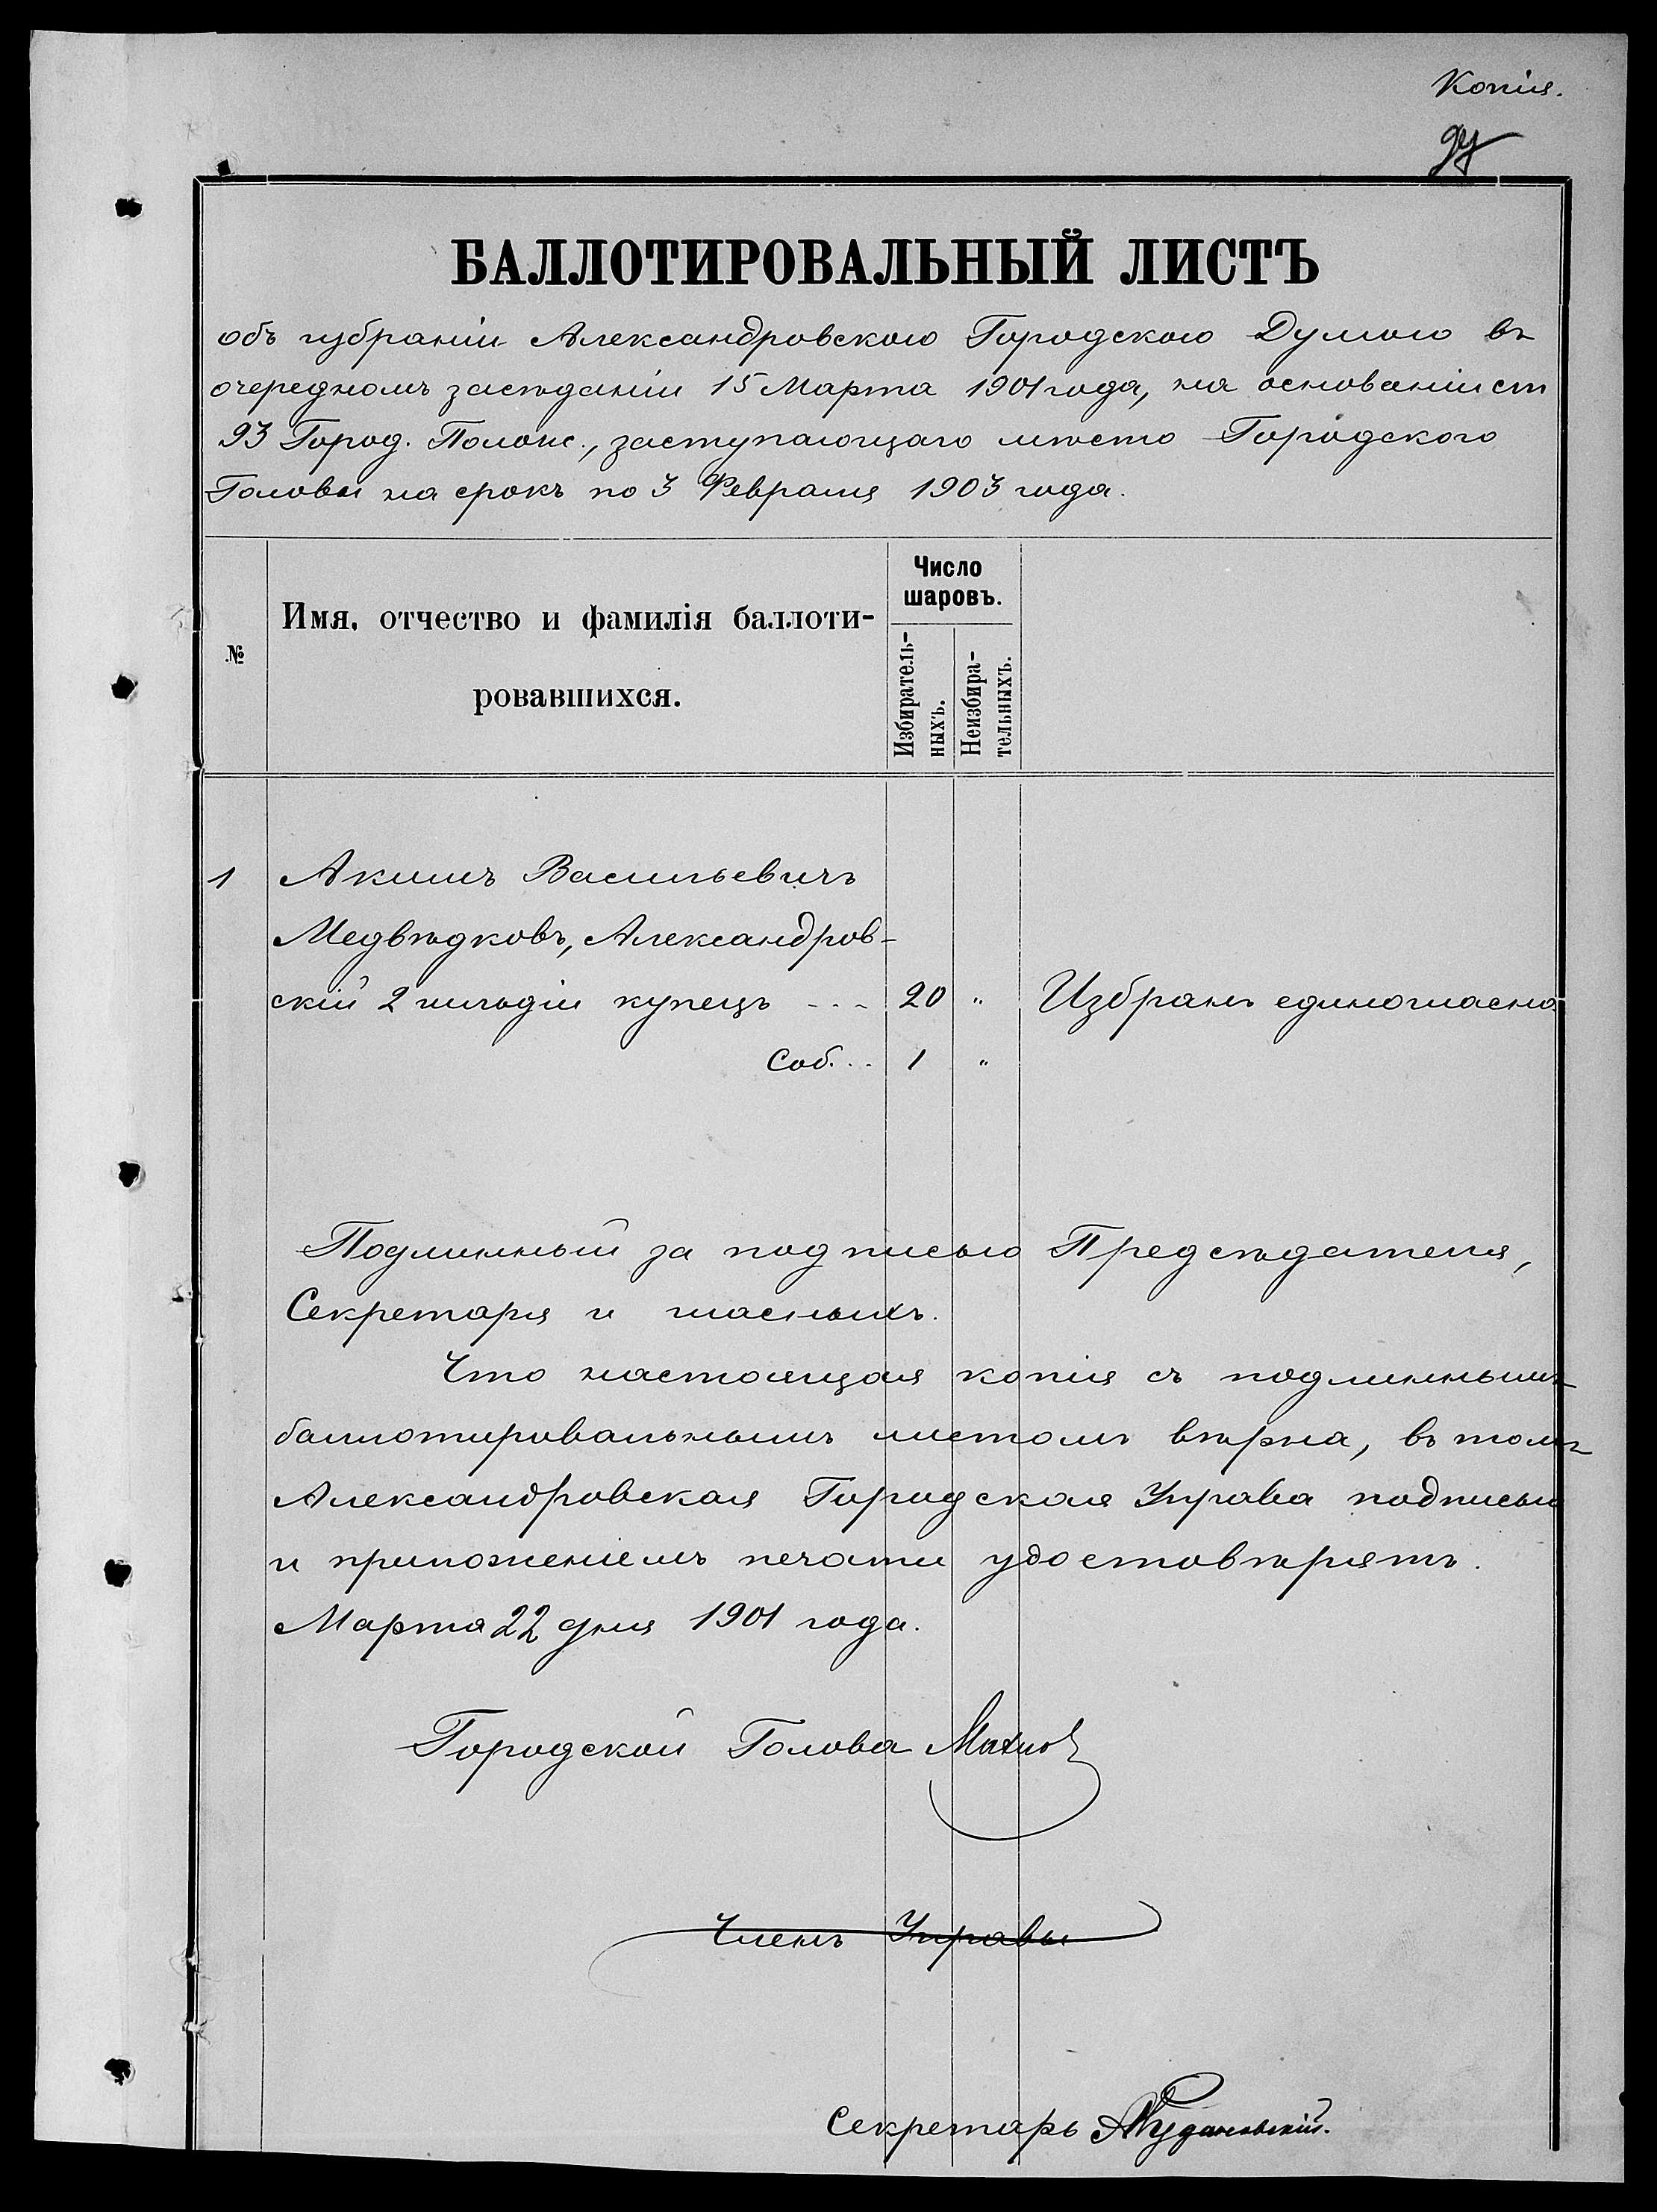 Копія.
БАЛЛОТИРОВАЛЬНЫЙ ЛИСТЪ
объ избраніи Александровскою Городскою Думою въ
очередномъ засѣданіи 15 Марта 1901 года, на основаніи ст
93 Город. Полож., заступающаго мѣсто Городского
Головы на срокъ по 3 Февраля 1903 года.
№
Имя, отчество и фамилія баллоти-
ровавшихся.
Число
шаровъ.
Избиратель-
ныхъ.
Неизбира-
тельныхъ.
1 Акимъ Васильевичъ
Медвѣдковъ, Александров-
скій 2 гильдіи купецъ - - - 20 " Избранъ единогласно
Соб. . . 1 "
Подлинный за подписью Предсѣдателя,
Секретаря и гласныхъ.
Что настоящая копія съ подлиннымъ
баллотировальнымъ листомъ вѣрна, въ томъ
Александровская Городская Управа подписью
и приложеніемъ печати удостовѣряетъ.
Марта 22 дня 1901 года.
Городской Голова
Членъ Управы
Секретарь